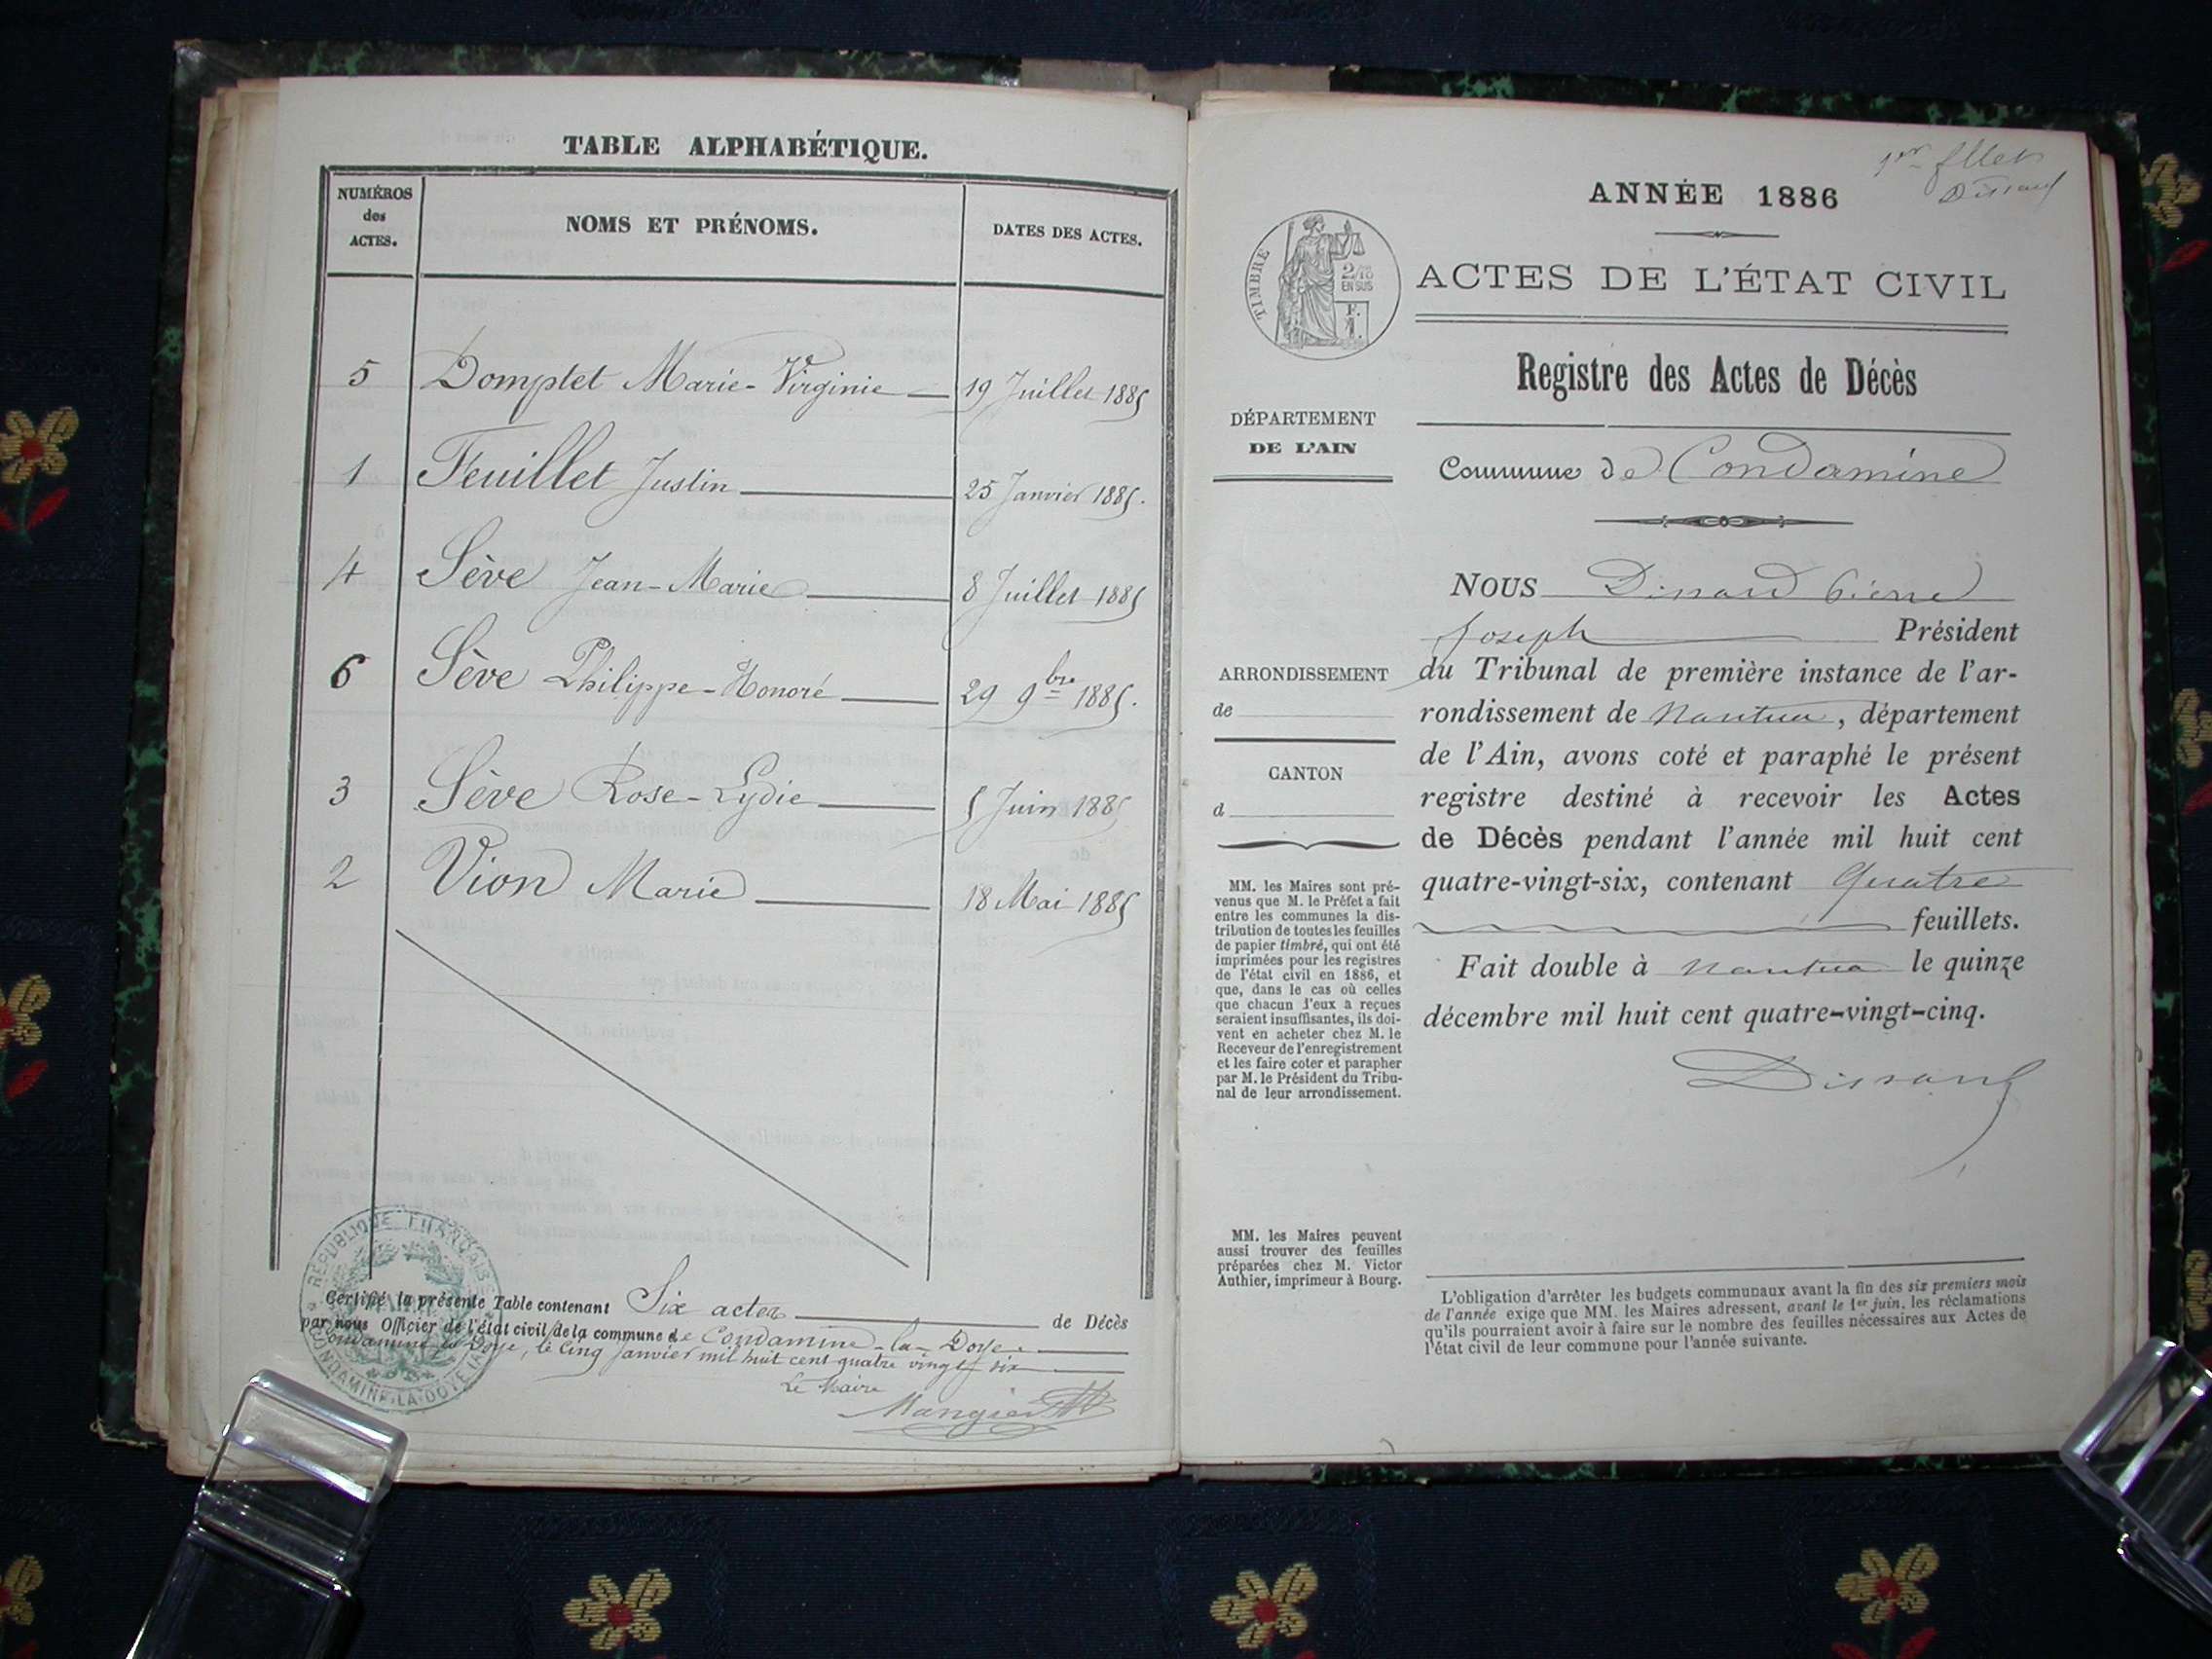 TABLE ALPHABÉTIQUE.
NUMÉROS des ACTES.
NOMS ET PRÉNOMS.
DATES DES ACTES.
5 Domptet Marie-Virginie 19 Juillet 1885
1 Feuillet Justin 25 Janvier 1885.
4 Sève Jean-Marie 8 Juillet 1885
6 Sève Philippe-Honoré 29 9bre 1885.
3 Sève Rose-Lydie 5 Juin 1885
2 Vion Marie 18 Mai 1885
RÉPUBLIQUE FRANÇAISE
CONDAMINE-LA-DOYE (AIN)
Certifié la présente Table contenant Six actes de Décès
par nous Officier de l'état civil de la commune de Condamine-la-Doye
Condamine la Doye, le Cinq Janvier mil huit cent quatre vingt six
Le Maire
1er fllet
Dissard
ANNÉE 1886
TIMBRE
2/10
EN SUS
F.
1.
ACTES DE L'ÉTAT CIVIL
Registre des Actes de Décès
DÉPARTEMENT
DE L'AIN
Commune de Condamine
NOUS Dissard Pierre
Joseph Président
du Tribunal de première instance de l'ar-
rondissement de Nantua, département
de l'Ain, avons coté et paraphé le présent
registre destiné à recevoir les Actes
de Décès pendant l'année mil huit cent
quatre-vingt-six, contenant Quatre
feuillets.
Fait double à Nantua le quinze
décembre mil huit cent quatre-vingt-cinq.
Dissard
ARRONDISSEMENT
de
CANTON
d
MM. les Maires sont pré-
venus que M. le Préfet a fait
entre les communes la dis-
tribution de toutes les feuilles
de papier timbré, qui ont été
imprimées pour les registres
de l'état civil en 1886, et
que, dans le cas où celles
que chacun d'eux a reçues
seraient insuffisantes, ils doi-
vent en acheter chez M. le
Receveur de l'enregistrement
et les faire coter et parapher
par M. le Président du Tribu-
nal de leur arrondissement.
MM. les Maires peuvent
aussi trouver des feuilles
préparées chez M. Victor
Authier, imprimeur à Bourg.
L'obligation d'arrêter les budgets communaux avant la fin des six premiers mois
de l'année exige que MM. les Maires adressent, avant le 1er juin, les réclamations
qu'ils pourraient avoir à faire sur le nombre des feuilles nécessaires aux Actes de
l'état civil de leur commune pour l'année suivante.